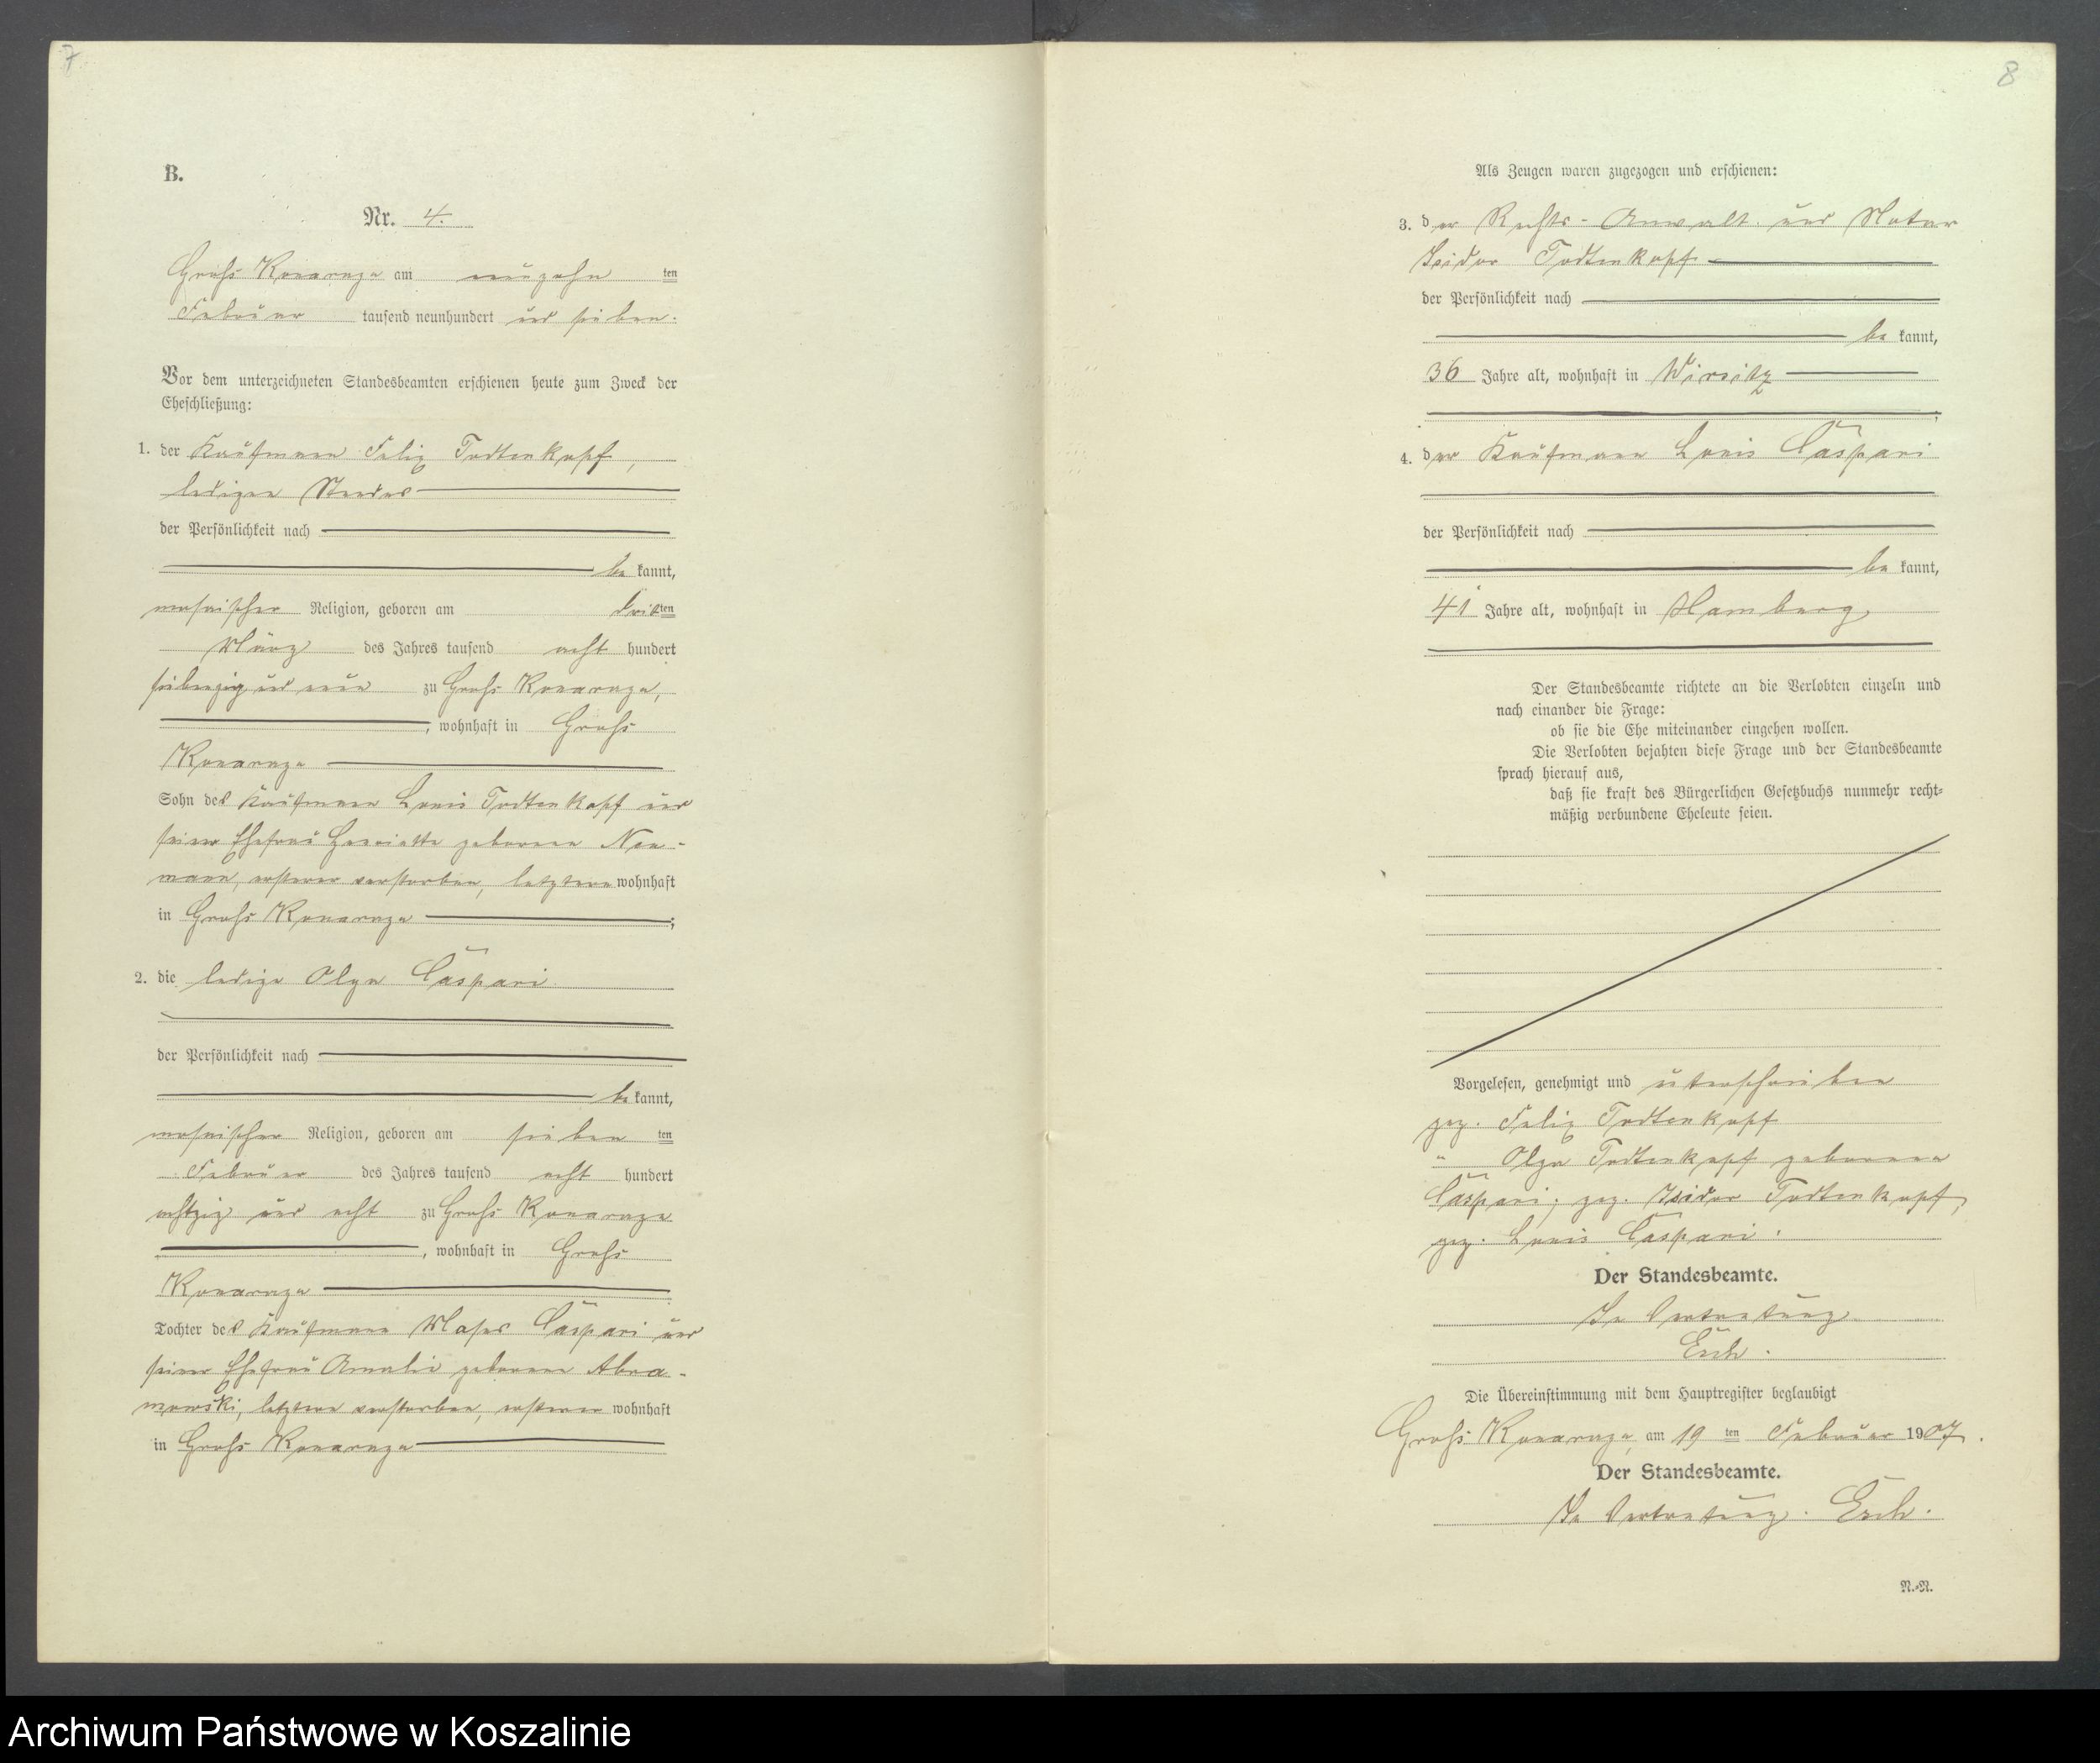 7
B.
Nr. 4.
Groß Konarzyn am neunzehn ten
Februar tausend neunhundert und sieben.
Vor dem unterzeichneten Standesbeamten erschienen heute zum Zweck der
Eheschließung:
1. der Kaufmann Felix Todtenkopf,
ledigen Standes
der Persönlichkeit nach
be kannt,
mosaischer Religion, geboren am dritten
März des Jahres tausend acht hundert
siebenzig und neun zu Groß
wohnhaft in Groß
Sohn des Kaufmann Louis Todtenkopf und
seiner Ehefrau Henriette geborenen Neu-
mann, ersterer verstorben, letztere wohnhaft
in Groß
2. die ledige Olga Caspari
der Persönlichkeit nach
be kannt,
mosaischer Religion, geboren am sieben ten
Februar des Jahres tausend acht hundert
achtzig und acht zu Groß
, wohnhaft in Groß
Tochter des Kaufmann Moses Caspari und
seiner Ehefrau Amalie geborenen Abra-
mowski, letztere verstorben, ersterer wohnhaft
in Groß
8
Als Zeugen waren zugezogen und erschienen:
3. der Rechts-Anwalt und Notar
Isidor Todtenkopf
der Persönlichkeit nach
be kannt,
36 Jahre alt, wohnhaft in Wirsitz
;
4. der Kaufmann Louis Caspari
der Persönlichkeit nach
be kannt,
41 Jahre alt, wohnhaft in Hamburg
Der Standesbeamte richtete an die Verlobten einzeln und
nach einander die Frage:
ob sie die Ehe miteinander eingehen wollen.
Die Verlobten bejahten diese Frage und der Standesbeamte
sprach hierauf aus,
daß sie kraft des Bürgerlichen Gesetzbuchs nunmehr recht-
mäßig verbundene Eheleute seien.
Vorgelesen, genehmigt und unterschrieben
gez. Felix Todtenkopf
" Olga Todtenkopf geborene
Caspari; gez. Isidor Todtenkopf,
gez. Louis Caspari.
Der Standesbeamte.
In Vertretung
Esch.
Die Übereinstimmung mit dem Hauptregister beglaubigt
Groß am 19 ten Februar 1907.
Der Standesbeamte.
In Vertretung. Esch.
N.-N.
Archiwum Państwowe w Koszalinie